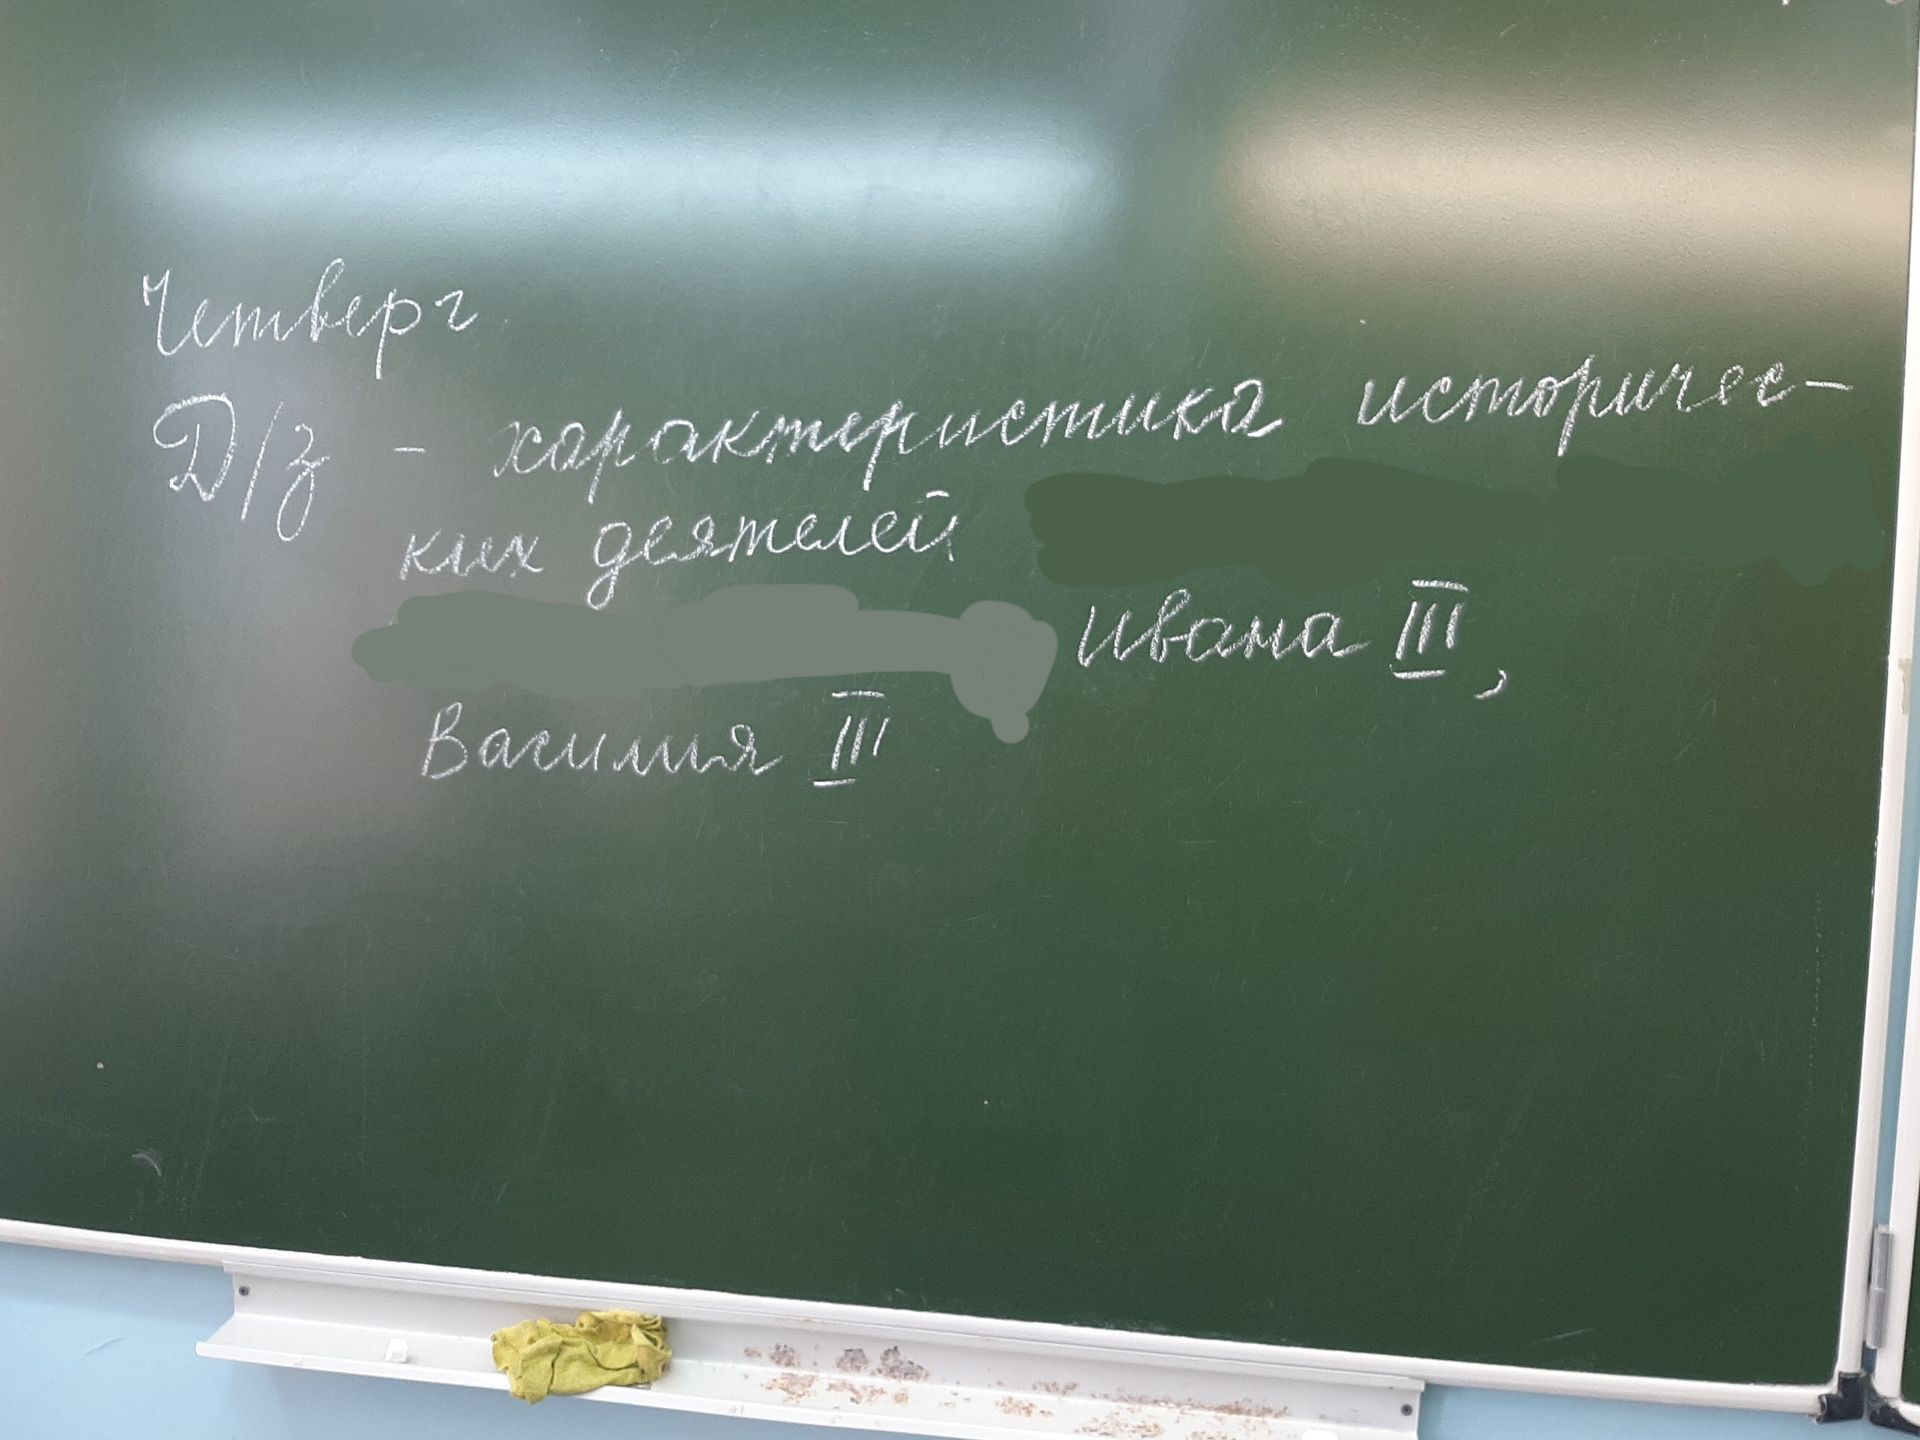 Четверг
Д/з - характеристика историчес-
ких деятелей
Ивана III,
Василия III